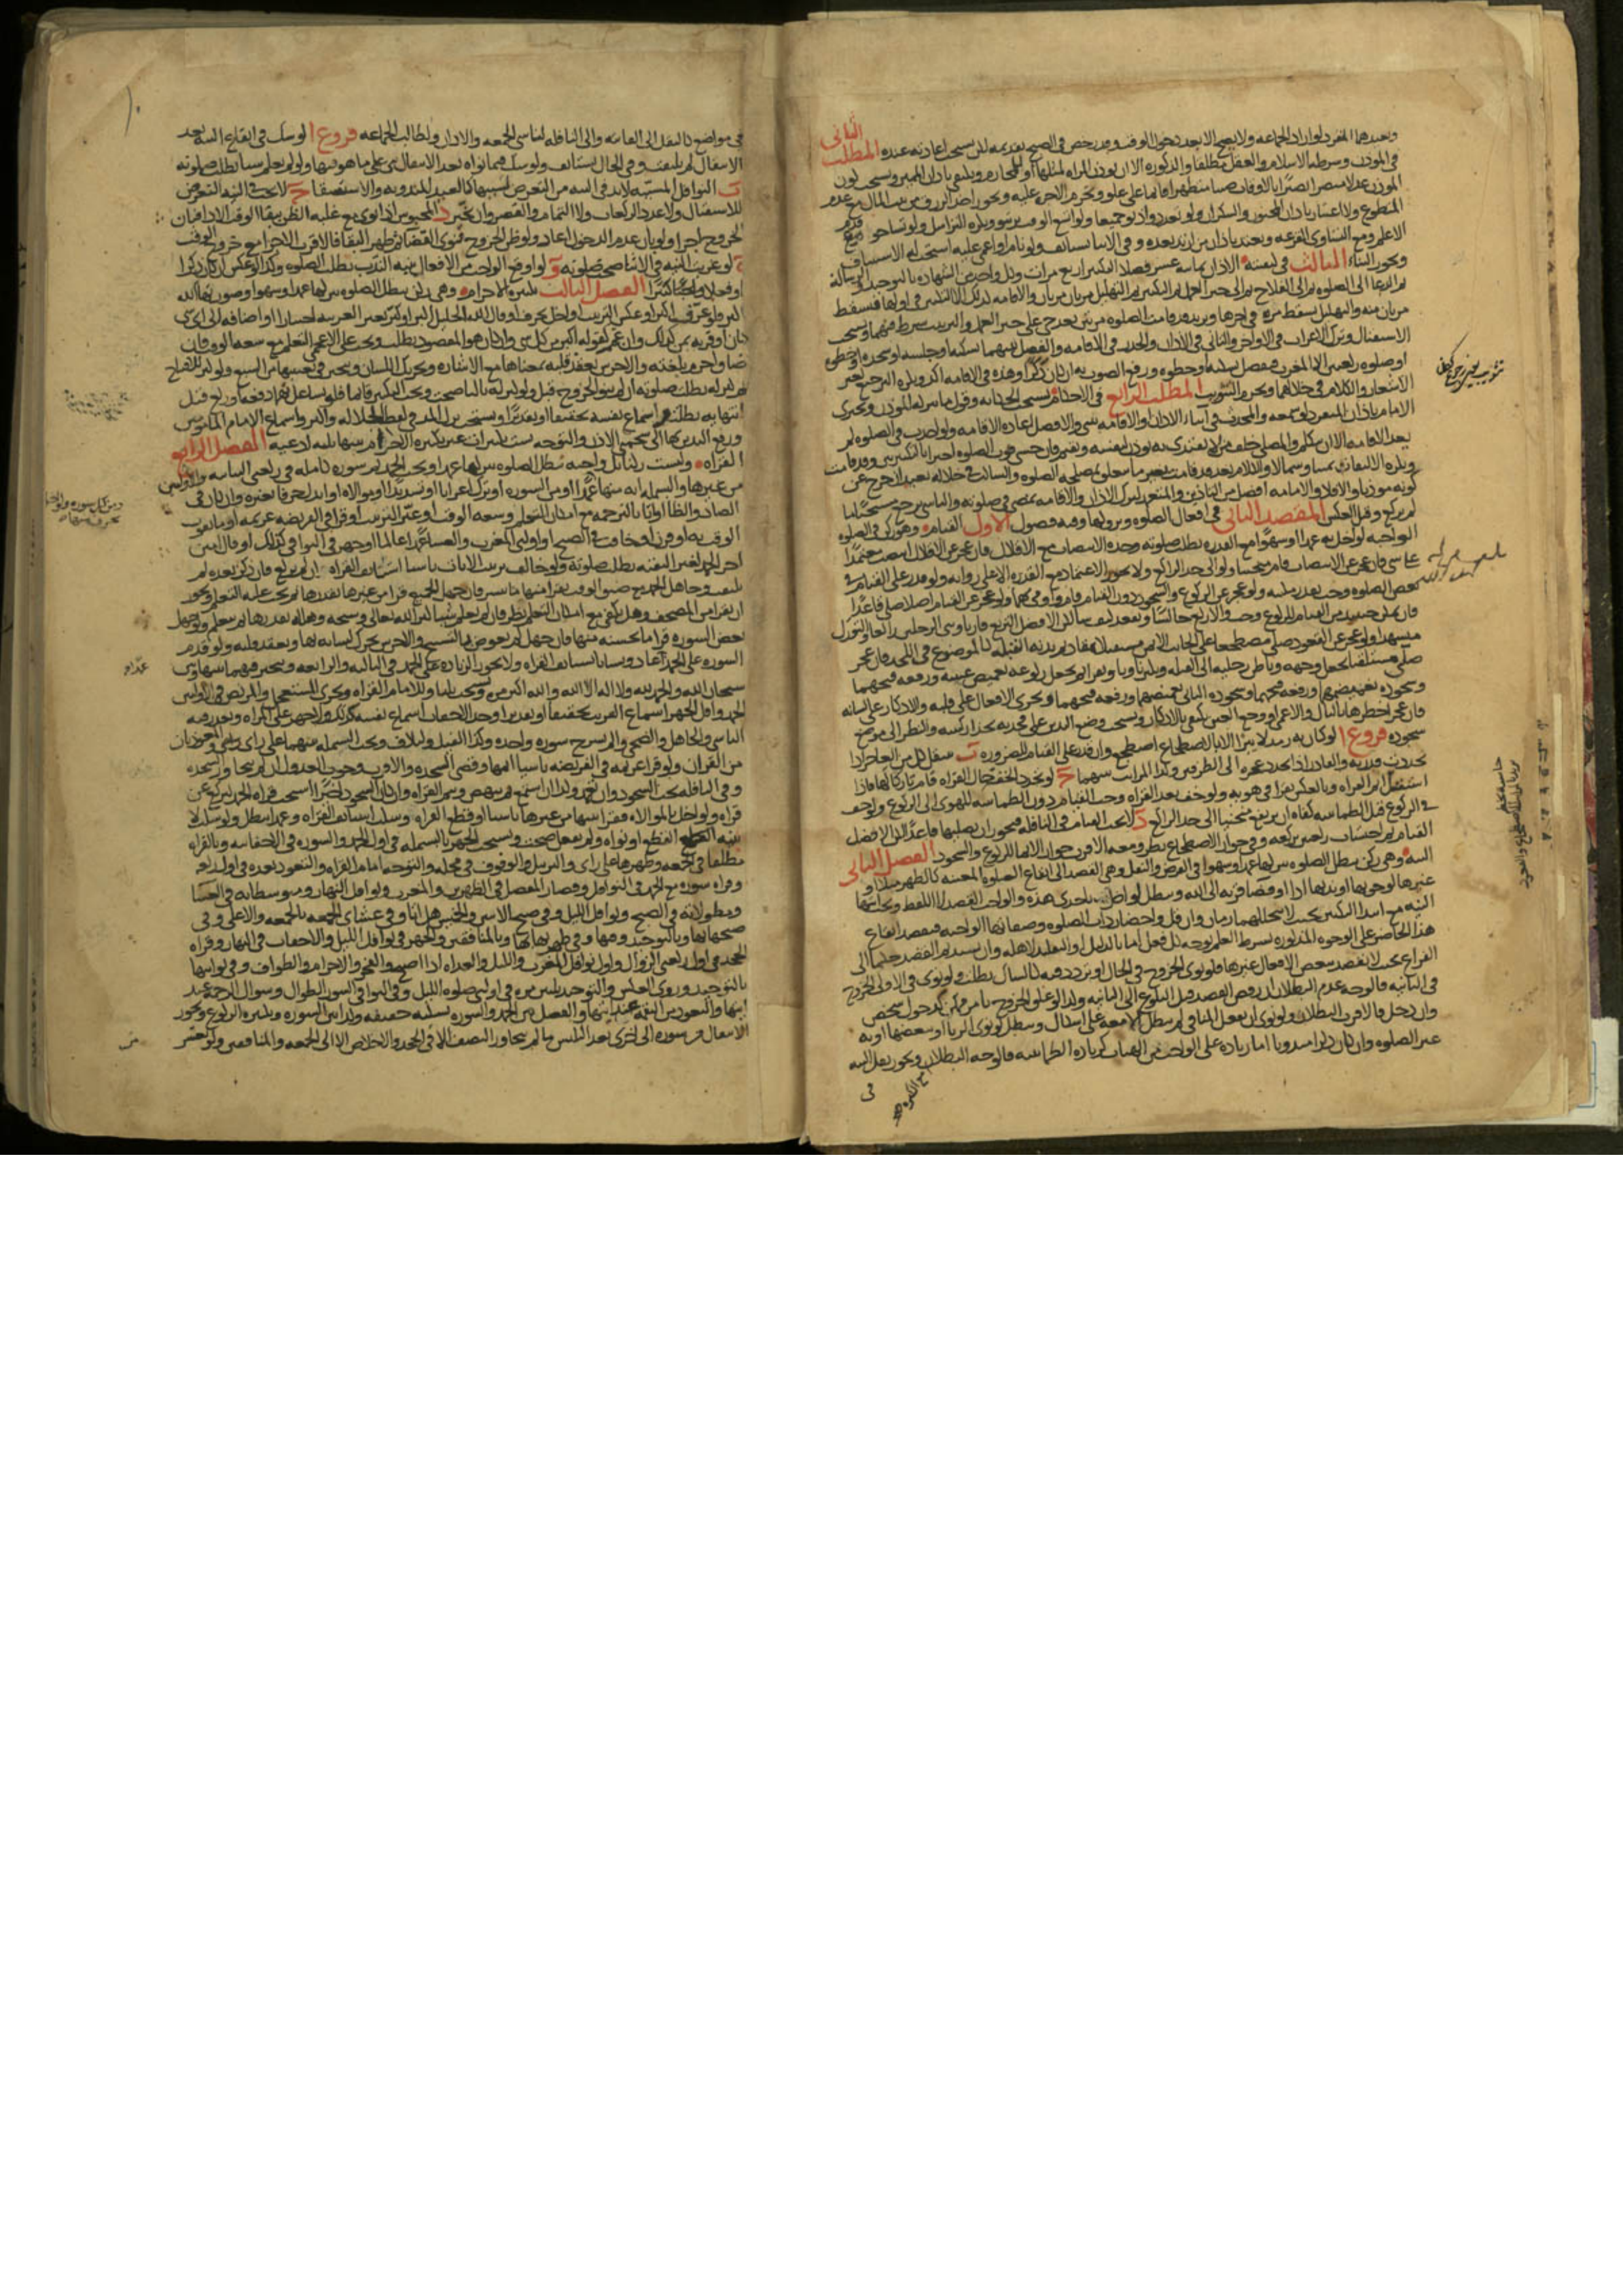 ويعيدهما المنفرد لو اراد الجماعه ولا يصح الا بعد دخول الوقت وقد رخص في الصبح تقديمه لكن يستحب اعادته عنده المطلب الثاني
في المؤذن وشرطه الاسلام والعقل مطلقا والذكوره الا ان تؤذن المراه لمثلها او للمحارم ويكتفى باذان المميز ويستحب كون
المؤذن عدلا مبصرا بصيرا بالاوقات صيتا متطهرا قائما على علو وتحرم الاجره عليه ويجوز اخذ الرزق من بيت المال مع عدم
المتطوع ولا اعتبار باذان المجنون والسكران ولو تعددوا اذنوا جميعا ولو اتسع الوقت ترتبوا ويكره التراسل ولو تشاحوا قدم
الاعلم ومع التساوي القرعه ويعتد باذان من ارتد بعده وفي الاثناء يستانف ولو نام او اغمي عليه استحب له الاستيناف
الثالث في كيفيته الاذان ثمانيه عشر فصلا التكبير اربع مرات وكل واحد من الشهاده بالتوحيد والرساله
ثم الدعاء الى الصلوه ثم الى الفلاح ثم الى خير العمل ثم التكبير ثم التهليل مرتان مرتان والاقامه كذلك الا التكبير في اولها فيسقط
مرتان منه والتهليل يسقط مره في اخرها ويزيد قد قامت الصلوه مرتين بعد حي على خير العمل والترتيب شرط فيهما ويستحب
الاستقبال وترك الاعراب في الاواخر والتاني في الاذان والحدر في الاقامه والفصل بينهما بسكته او جلسه او سجده او خطوه
او صلوه ركعتين الا المغرب فيفصل بسكته او خطوه ورفع الصوت به ان كان ذكرا وهذه في الاقامه اكد ويكره الترجيع لغير
الاشعار والكلام في خلالهما ويحرم التثويب المطلب الرابع في الاحكام يستحب الحكايه وقول ما يتركه المؤذن ويجتزي
الامام باذان المنفرد لو سمعه والمحدث في اثناء الاذان والاقامه يبني والافضل اعاده الاقامه ولو احدث في الصلوه لم
يعد الاقامه الا ان يتكلم والمصلي خلف من لا يقتدى به يؤذن لنفسه ويقيم فان خشي فوات الصلوه اجتزا بالتكبيرتين وقد قامت
ويكره الالتفات يمينا وشمالا والكلام بعد قد قامت بغير ما يتعلق بمصلحه الصلوه والساكت في خلاله يعيد ان خرج عن
كونه مؤذنا والاقامه افضل من التاذين والمتعمد لترك الاذان والاقامه يمضي في صلوته والناسي يرجع مستحبا ما
لم يركع وقيل بالعكس المقصد الثاني في افعال الصلوه وتروكها وفيه فصول الاول القيام وهو ركن في الصلوه
الواجبه لو اخل به عمدا او سهوا مع القدره بطلت صلوته وحده الانتصاب مع الاقلال فان عجز عن الاقلال انتصب معتمدا
على شي فان عجز عن الانتصاب قام منحنيا ولو الى حد الراكع ولا يجوز الاعتماد مع القدره الا على روايه ولو قدر على القيام في
بعض الصلوه وجب بقدر مكنته ولو عجز عن الركوع والسجود دون القيام قام واومى بهما ولو عجز عن القيام اصلا صلى قاعدا
فان تمكن حينئذ من القيام للركوع وجب والا ركع جالسا ويقعد كيف شاء لكن الافضل التربع قارئا وثني الرجلين راكعا والتورك
متشهدا ولو عجز عن القعود صلى مضطجعا على الجانب الايمن مستقبلا بمقاديم بدنه القبله كالموضوع في اللحد فان عجز
صلى مستلقيا يجعل وجهه وباطن رجليه الى القبله ويكبر ناويا ويقرا ثم يجعل ركوعه تغميض عينيه ورفعه فتحهما
وسجوده تغميضهما ورفعه فتحهما وسجوده الثاني تغميضهما ورفعه فتحهما ويجري الافعال على قلبه والاذكار على لسانه
فان عجز اخطرها بالبال والاعمى او وجع العين يكتفي بالاذكار ويستحب وضع اليدين على فخذيه بحذاء ركبتيه والنظر الى موضع
سجوده فروع ا لو كان به رمد لا يبرا الا بالاضطجاع اضطجع وان قدر على القيام للضروره ب ينتقل كل من العاجز اذا
تجددت قدرته والقادر اذا تجدد عجزه الى الطرفين وكذا المراتب بينهما ج لو تجدد الخف حال القراءه قام تاركا لها فاذا
استقل اتم القراءه وبالعكس يقرا في هويه ولو خف بعد القراءه وجب القيام دون الطمانينه للهوي الى الركوع ولو خف
في الركوع قبل الطمانينه كفاه ان يرتفع منحنيا الى حد الراكع د لا يجب القيام في النافله فيجوز ان يصليها قاعدا لكن الافضل
القيام ثم احتساب ركعتين بركعه وفي جواز الاضطجاع نظر ومعه الاقرب جواز الايماء للركوع والسجود الفصل الثاني
النيه وهي ركن تبطل الصلوه بتركها عمدا وسهوا في الفرض والنفل وهي القصد الى ايقاع الصلوه المعينه كالظهر مثلا او
غيرها لوجوبها او ندبها اداء او قضاء قربه الى الله وتبطل لو اخل باحدى هذه والواجب القصد لا اللفظ ويجب انتهاء
النيه مع ابتداء التكبير بحيث لا يتخللهما زمان وان قل واحضار ذات الصلوه وصفاتها الواجبه فيقصد ايقاع
هذا الحاضر على الوجوه المذكوره بشرط العلم بوجه كل فعل اما بالدليل او التقليد لاهله وان يستديم القصد حكما الى
الفراغ بحيث لا يقصد ببعض الافعال غيرها فلو نوى الخروج في الحال او تردد فيه كالشاك بطلت ولو نوى في الاولى الخروج
في الثانيه فالوجه عدم البطلان ان رفض القصد قبل البلوغ الى الثانيه وكذا لو علق الخروج بامر ممكن كدخول شخص
وان دخل فالاقرب البطلان ولو نوى ان يفعل المنافي لم تبطل الا معه على اشكال وتبطل لو نوى الرياء او ببعضها او به
غير الصلوه وان كان ذكرا مندوبا اما زياده على الواجب من الهيات كزياده الطمانينه فالوجه البطلان ويجوز نقل النيه
في
في مواضع كالنقل الى الفائته والى النافله لناسي الجمعه والاذان ولطالب الجماعه فروع ا لو شك في ايقاع النيه بعد
الانتقال لم يلتفت وفي الحال يستانف ولو شك فيما نواه بعد الانتقال بنى على ما هو فيها ولو لم يعلم شيئا بطلت صلوته
ب النوافل المسببه لا بد في النيه من التعرض لسببها كالعيد المندوبه والاستسقاء ج لا يجب في النيه التعرض
للاستقبال ولا عدد الركعات ولا التمام والقصر وان تخير د المحبوس اذا نوى مع غلبه الظن ببقاء الوقت الاداء فبان
الخروج اجزا ولو بان عدم الدخول اعاد ولو ظن الخروج فنوى القضاء ثم ظهر البقاء فالاقرب الاجزاء مع خروج الوقت
ه لو عزبت النيه في الاثناء صحت صلوته و لو اوقع الواجب من الافعال بنيه الندب بطلت الصلوه وكذا لو عكس ان كان ذكرا
او فعلا واجبا كثيرا الفصل الثالث تكبيره الاحرام وهي ركن تبطل الصلوه بتركها عمدا وسهوا وصورتها الله
اكبر فلو عرف اكبر او عكس الترتيب او اخل بحرف او قال الله الجليل اكبر او كبر بغير العربيه اختيارا او اضافه الى اي شي
كان او قرنه بمن كذلك وان عمم كقوله اكبر من كل شي وان كان هو المقصود بطلت ويجب على الاعجمي التعلم مع سعه الوقت فان
ضاق احرم بلغته والاخرس يعقد قلبه بمعناها مع الاشاره وتحريك اللسان ويتخير في تعيينها من السبع ولو كبر للافتتاح
ثم كبر له بطلت صلوته ان لم ينو الخروج قبل ولو كبر له ثالثا صحت ويجب التكبير قائما فلو تشاغل بهما دفعه او ركع قبل
انتهائه بطلت واسماع نفسه تحقيقا او تقديرا ويستحب ترك المد في لفظ الجلاله واكبر واسماع الامام المامومين
ورفع اليدين بها الى شحمتي الاذن والتوجه بست تكبيرات غير تكبيره الاحرام بينها ثلثه ادعيه الفصل الرابع
القراءه وليست ركنا بل واجبه تبطل الصلوه بتركها عمدا ويجب الحمد ثم سوره كامله في ركعتي الثنائيه والاوليين
من غيرها والبسمله ايه منها عمدا او من السوره او ترك اعرابا او تشديدا او موالاه او ابدل حرفا بغيره وان كان في
الضاد والظاء او اتى بالترجمه مع امكان التعلم وسعه الوقت او غير الترتيب او قرا في الفريضه عزيمه او ما يفوت
الوقت به او قرن او خافت في الصبح او اوليي المغرب والعشاء عمدا عالما او جهر في البواقي كذلك او قال امين
اخر الحمد لغير التقيه بطلت صلوته ولو خالف ترتيب الايات ناسيا استانف القراءه ان لم يركع فان ذكر بعده لم
يلتفت وجاهل الحمد مع ضيق الوقت يقرا منها ما تيسر فان جهل الجميع قرا من غيرها بقدرها ثم يجب عليه التعلم ويجوز
ان يقرا من المصحف وهل يكتفي مع امكان التعلم نظر فان لم يعلم شيئا كبر الله تعالى وسبحه وهلله بقدرها ثم يتعلم ولو جهل
بعض السوره قرا ما يحسنه منها فان جهل لم يعوض بالتسبيح والاخرس يحرك لسانه بها ويعقد قلبه ولو قدم
السوره على الحمد اعاد وناسيا يستانف القراءه ولا تجوز الزياده على الحمد في الثالثه والرابعه ويتخير فيهما بينها وبين
سبحان الله والحمد لله ولا اله الا الله والله اكبر مره ويستحب ثلثا وللامام القراءه ويجزي المستعجل والمريض في الاوليين
الحمد واقل الجهر اسماع القريب تحقيقا او تقديرا وحد الاخفات اسماع نفسه كذلك ولا جهر على المراه ويعذر فيه
الناسي والجاهل والضحى والم نشرح سوره واحده وكذا الفيل ولايلاف وتجب البسمله بينهما على راي والمعوذتان
من القران ولو قرا عزيمه في الفريضه ناسيا اتمها وقضى السجده والاقرب وجوب العدول ان لم يتجاوز السجده
وفي النافله يجب السجود وان تعمد وكذا ان استمع ثم ينهض ويتم القراءه وان كان السجود اخيرا استحب قراءه الحمد ليركع عن
قراءه ولو اخل بالموالاه فقرا بينها من غيرها ناسيا او قطع القراءه وسكت استانف القراءه وعمدا تبطل ولو سكت لا
بنيه القطع او نواه ولم يفعل صحت ويستحب الجهر بالبسمله في اول الحمد والسوره في الاخفاتيه وبالقراءه
مطلقا في الجمعه وظهرها على راي والترتيل والوقوف في محله والتوجه امام القراءه والتعوذ بعده في اول ركعه
وقراءه سوره مع الحمد في النوافل وقصار المفصل في الظهرين والمغرب ونوافل النهار ومتوسطاته في العشاء
ومطولاته في الصبح ونوافل الليل وفي صبح الاثنين والخميس هل اتى وفي عشائي الجمعه بالجمعه والاعلى وفي
صبحها بها وبالتوحيد وفيها وفي ظهريها بها وبالمنافقين والجهر في نوافل الليل والاخفات في النهار وقراءه
الجحد في اول ركعتي الزوال واول نوافل المغرب والليل والغداه اذا اصبح والفجر والاحرام والطواف وفي ثوانيها
بالتوحيد وروي العكس والتوحيد ثلثين مره في اوليي صلوه الليل وفي البواقي السور الطوال وسؤال الرحمه عند
ايتها والتعوذ من النقمه عند ايتها والفصل بين الحمد والسوره بسكته خفيفه وكذا بين السوره وتكبيره الركوع ويجوز
الانتقال من سوره الى اخرى بعد التلبس ما لم يتجاوز النصف الا في الجحد والاخلاص الا الى الجمعه والمنافقين ولو تعسر